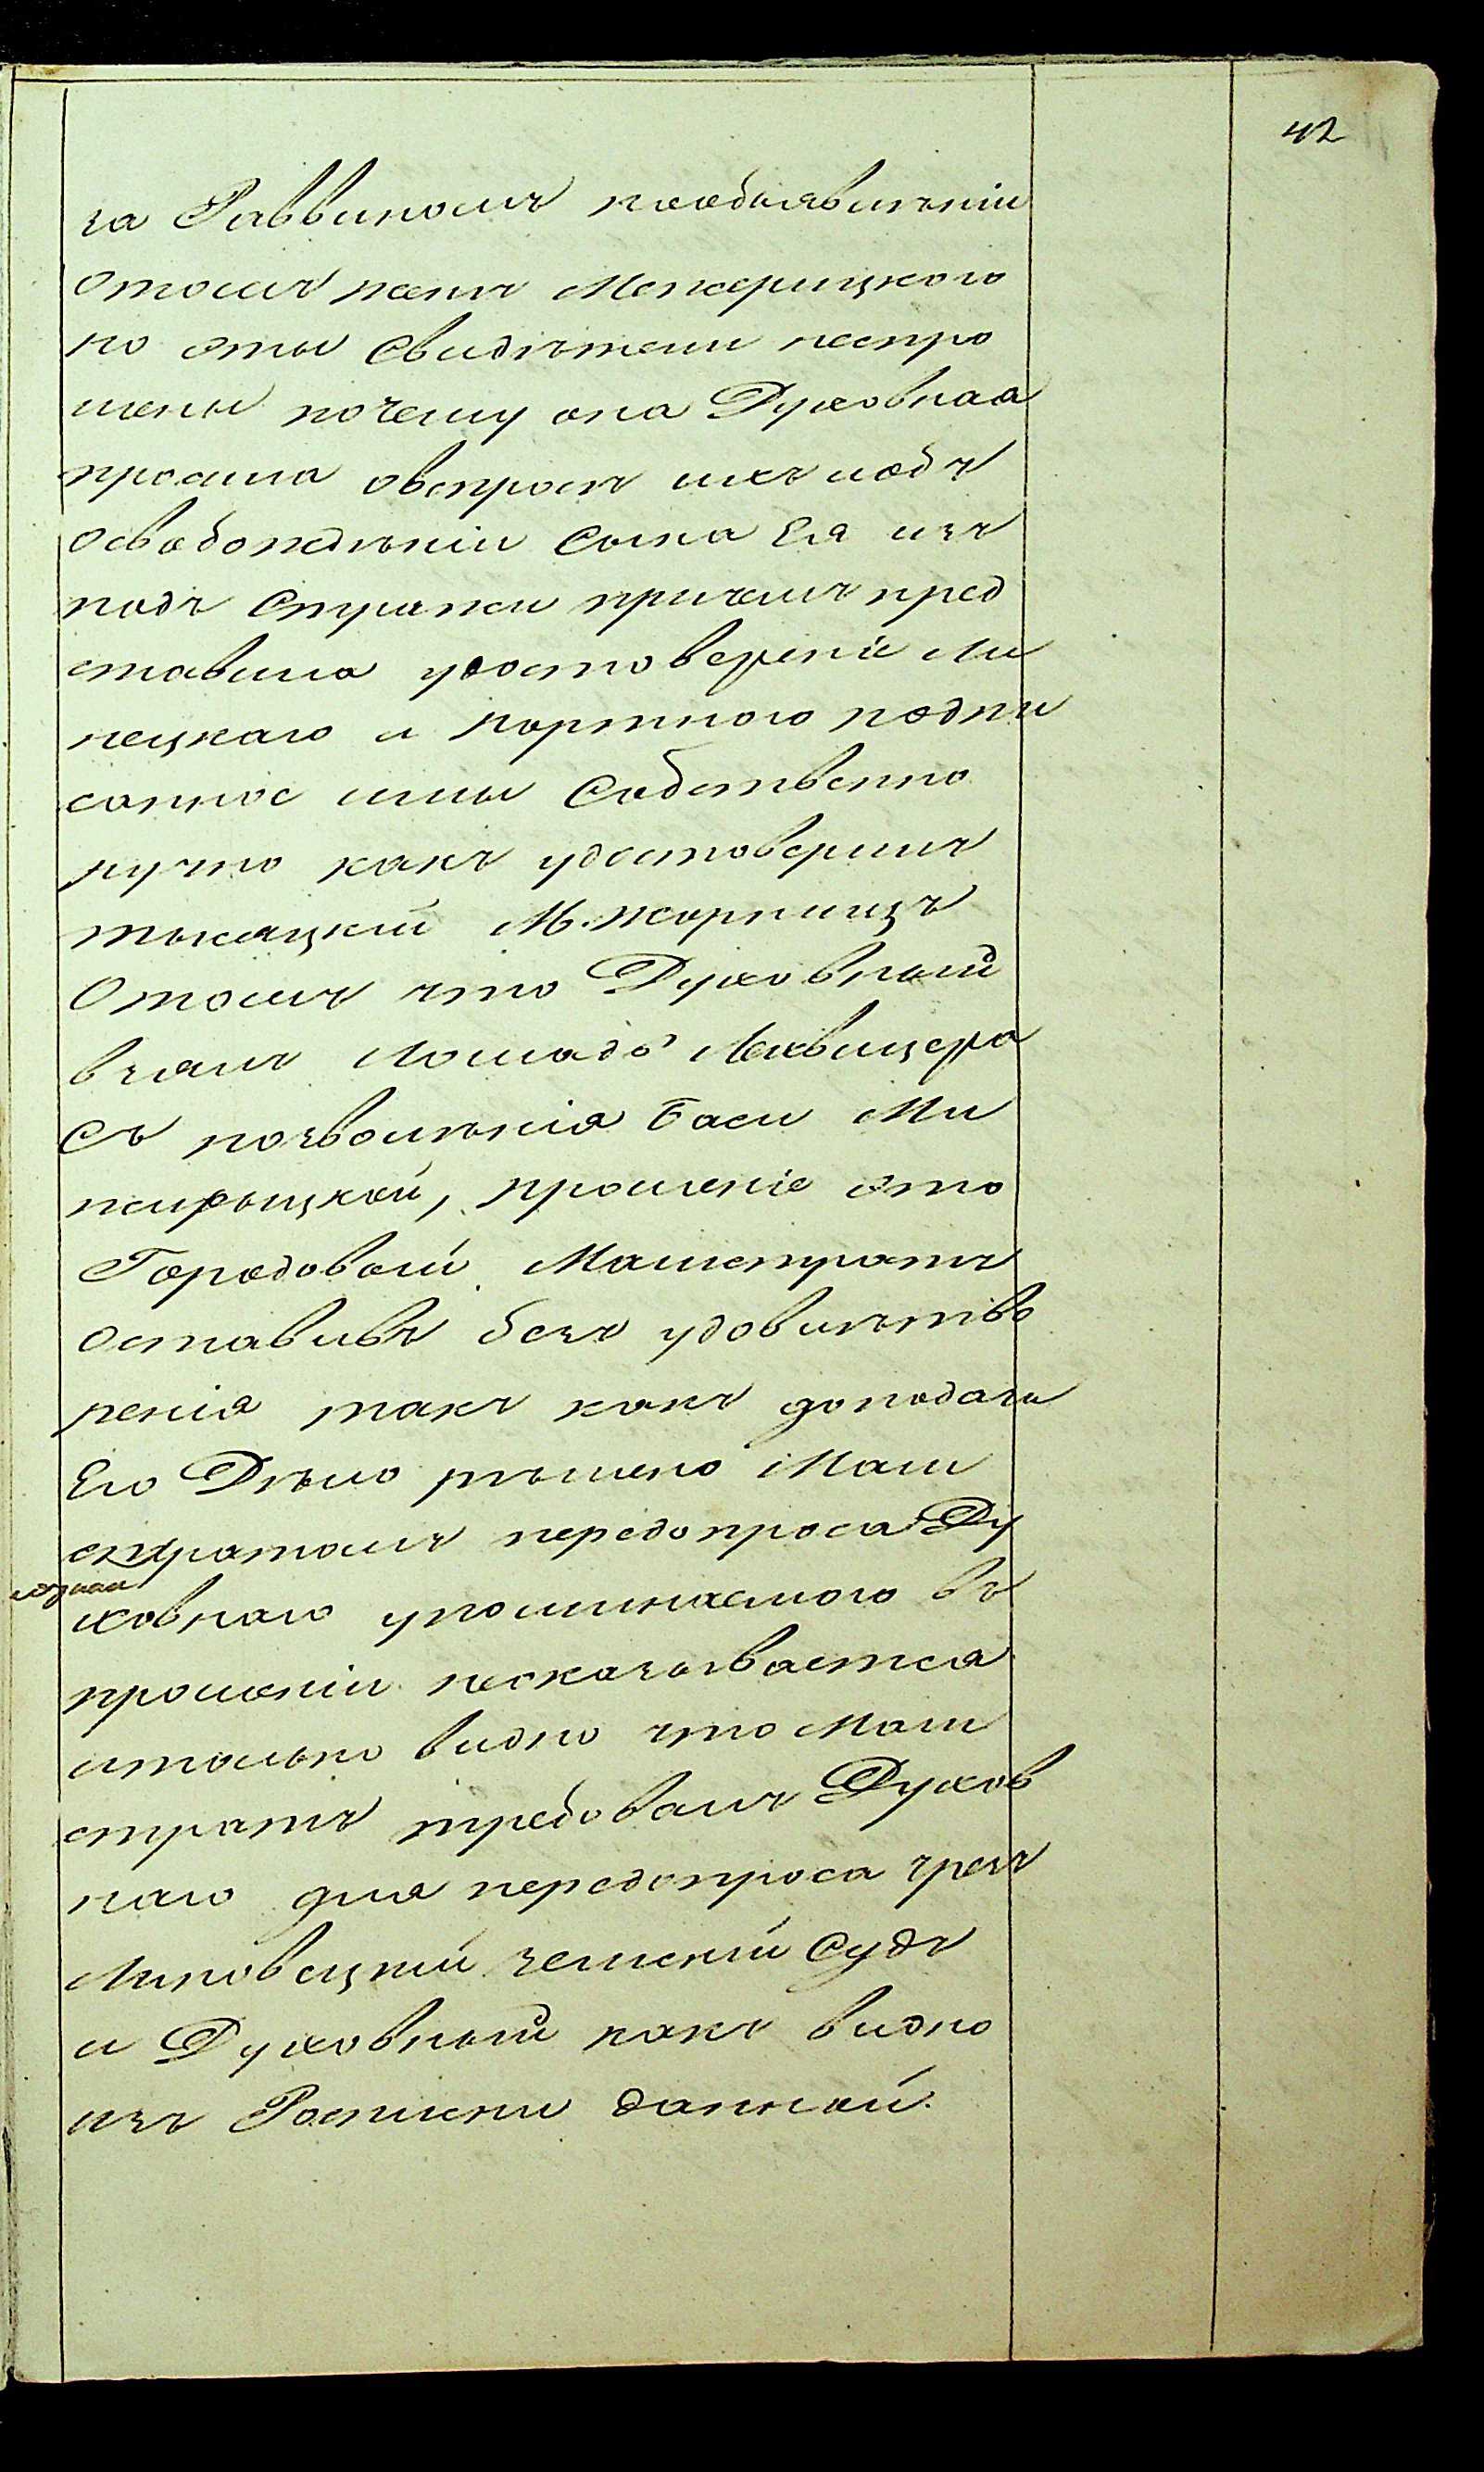 42
га Раввиномъ пообъявленіи
отомъ женѣ Межерицкого
но эты свидѣтели неспро
шены почему она Духовная
просила овспросѣ ихъ иобъ
освобожденіи сына Ея изъ
подъ стражи причемъ пред
ставила удостоверенїе Ли
пецкаго и Портного подпи
санное ими собственно
ручно какъ удостоверилъ
тысяцкій М. Жорнищъ
отомъ что Духовный
взялъ лошадь Лехвицера
съ позволѣнія Баси Ми
жирыцкой, прошеніе это
Городовый Магистратъ
оставивъ безъ удовилѣтво
ренія такъ какъ доподачи
Его Дѣло рѣшено Маги
стратомъ передопроса Ду
ховнаго упоминаемого въ
прошеніи нескazывается
итолько видно что Маги
стратъ требовалъ Духов
наго для передопроса чрезъ
Липовецкій земскій Судъ
и Духовный какъ видно
изъ Росписки данной.